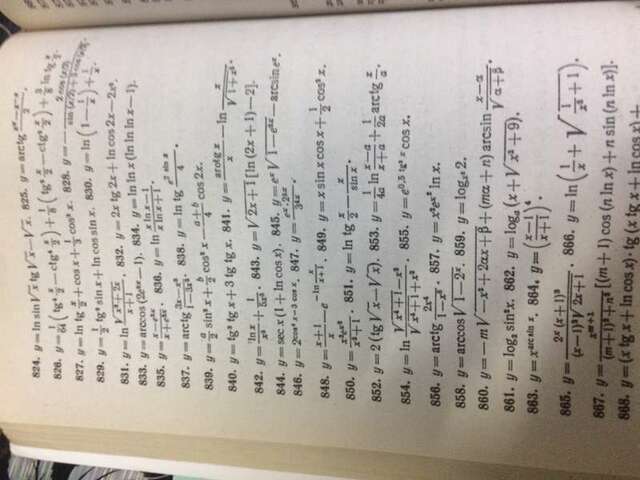 824. y=ln sin √x tg √x−√x. 825. y=arctg (xˣ−x⁻ˣ)/2.
826. y=1/64 (tg⁴ x/2−ctg⁴ x/2)+1/8 (tg² x/2−ctg² x/2)+3/8 ln tg x/2.
827. y=ln tg x/2+cos x+1/3 cos³ x. 828. y=− 2 cos (x/2)
829. y=1/2 tg² sin x+ln cos sin x. 830. y=ln (1−1/x)+1/x.
831. y=ln √(x²+2x)/(x+1). 832. y=2x tg 2x+ln cos 2x−2x².
833. y=arccos (2e²ˣ−1). 834. y=ln ln x (ln ln ln x−1).
835. y=(x−e²ˣ)/(x+e²ˣ). 836. y=ln (x ln x−1)/(x ln x+1).
837. y=arctg (3x−x³)/(1−3x²). 838. y=ln tg (e² ˢⁱⁿ ˣ)/4.
839. y=a/2 sin² x+b/2 cos² x−(a+b)/4 cos 2x.
840. y=tg³ tg x+3 tg tg x. 841. y=(arctg x)/x−ln x/√(1+x²).
842. y=(ln x)/x⁵+1/(5x⁵). 843. y=√(2x+1) [ln (2x+1)−2].
844. y=sec x (1+ln cos x). 845. y=eˣ √(1−e²ˣ)−arcsin eˣ.
846. y=2^(cos³ x−3 cos x). 847. y=(eˣ·2³ˣ)/3⁴ˣ.
848. y=(x+1)/x−e^(−ln x/(x+1)). 849. y=x sin x cos x+1/2 cos² x.
850. y=(x²eˣ²)/(x²+1). 851. y=ln tg x/2−x/(sin x).
852. y=2 (tg √x−√x). 853. y=1/(4a) ln (x−a)/(x+a)+1/(2a) arctg x/a.
854. y=ln (√(x⁴+1)−x²)/(√(x⁴+1)+x²). 855. y=e^(0,5 tg² x) cos x.
856. y=arctg 2x⁴/(1−x⁸). 857. y=x²eˣ² ln x.
858. y=arccos √(1−2ˣ). 859. y=logₓ² 2.
860. y=−m√(−x²+2αx+β)+(mα+n) arcsin (x−α)/√(α+β).
861. y=log₅ sin²x. 862. y=logₐ (x+√(x²+9)).
863. y=x^(arcsin x). 864. y=((x−1)/(x+1))⁴.
865. y=(2ˣ (x+1)³)/((x−1)² √(2x+1)). 866. y=ln (1/x+√(1/x²+1)).
867. y=xᵐ⁺¹/((m+1)²+n²) [(m+1) cos (n ln x)+n sin (n ln x)].
868. y=(x tg x+ln cos x)·tg (x tg x+ln cos x)+